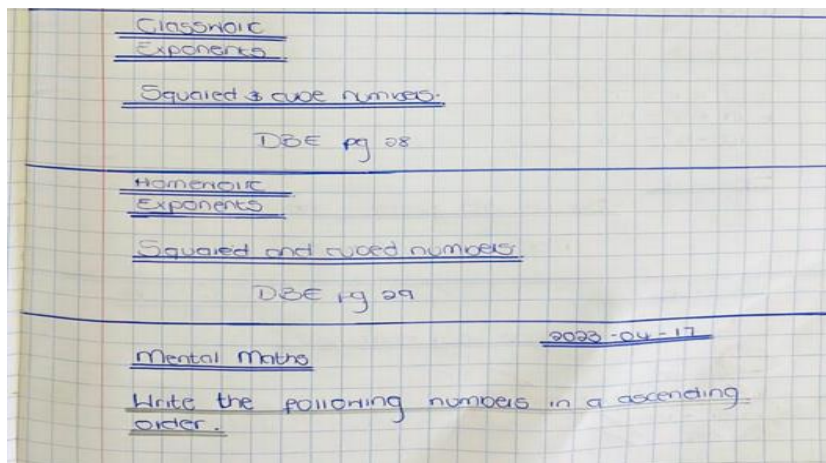 Classwork
Exponents
Squared & cube numbers.
DBE pg 28
Homework
Exponents
Squared and cubed numbers
DBE pg 29
2023-04-17
Mental Maths
Write the following numbers in a ascending
order.